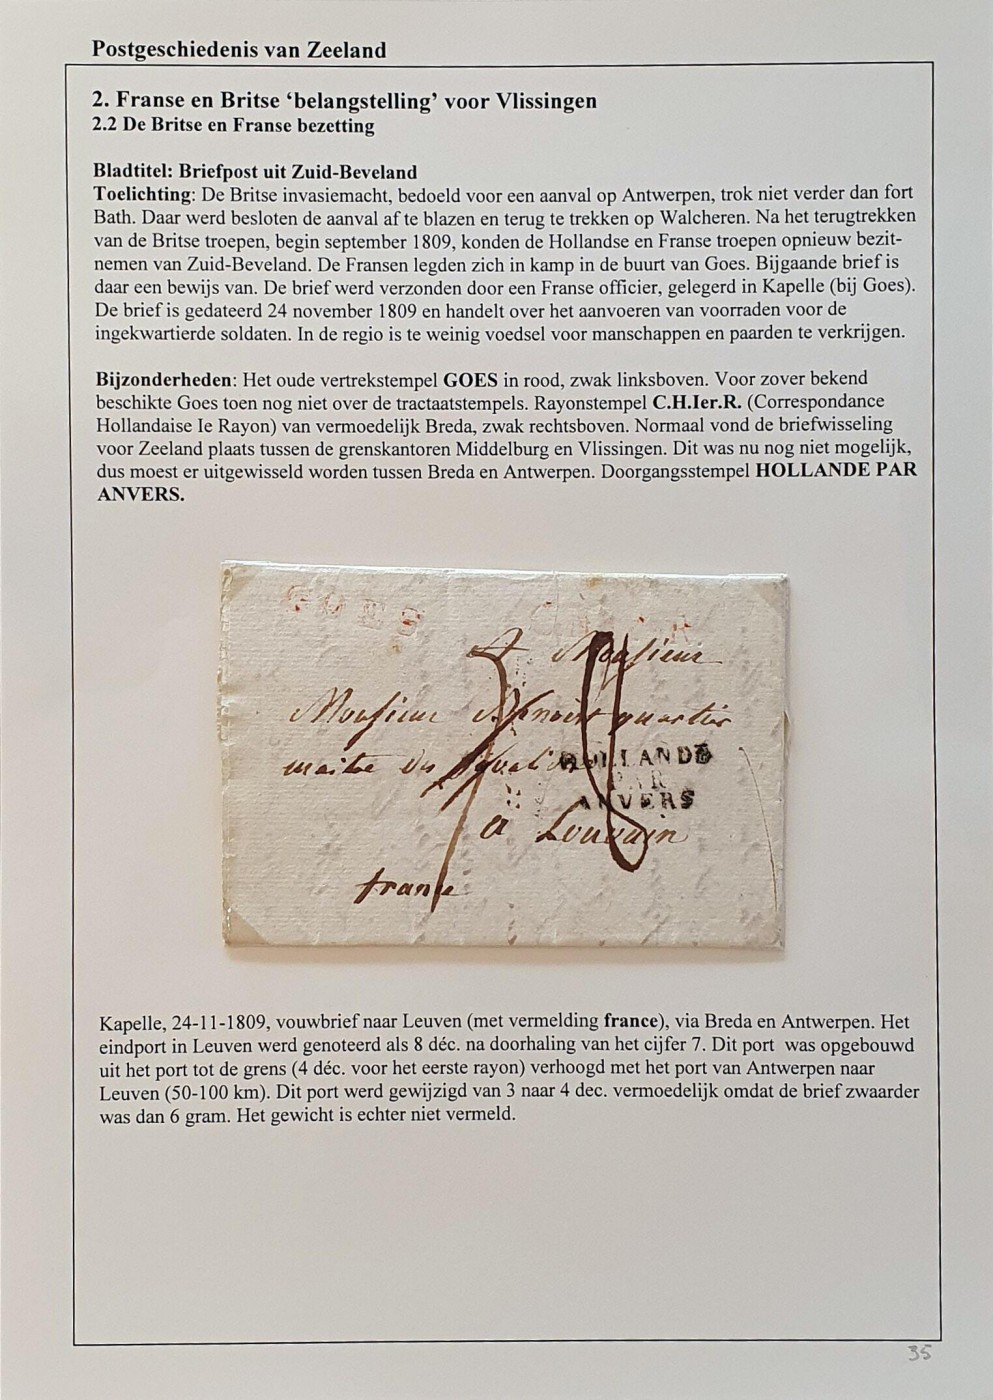 Postgeschiedenis van Zeeland
2. Franse en Britse ‘belangstelling’ voor Vlissingen
2.2 De Britse en Franse bezetting
Bladtitel: Briefpost uit Zuid-Beveland
Toelichting: De Britse invasiemacht, bedoeld voor een aanval op Antwerpen, trok niet verder dan fort
Bath. Daar werd besloten de aanval af te blazen en terug te trekken op Walcheren. Na het terugtrekken
van de Britse troepen, begin september 1809, konden de Hollandse en Franse troepen opnieuw bezit-
nemen van Zuid-Beveland. De Fransen legden zich in kamp in de buurt van Goes. Bijgaande brief is
daar een bewijs van. De brief werd verzonden door een Franse officier, gelegerd in Kapelle (bij Goes).
De brief is gedateerd 24 november 1809 en handelt over het aanvoeren van voorraden voor de
ingekwartierde soldaten. In de regio is te weinig voedsel voor manschappen en paarden te verkrijgen.
Bijzonderheden: Het oude vertrekstempel GOES in rood, zwak linksboven. Voor zover bekend
beschikte Goes toen nog niet over de tractaatstempels. Rayonstempel C.H.Ier.R. (Correspondance
Hollandaise Ie Rayon) van vermoedelijk Breda, zwak rechtsboven. Normaal vond de briefwisseling
voor Zeeland plaats tussen de grenskantoren Middelburg en Vlissingen. Dit was nu nog niet mogelijk,
dus moest er uitgewisseld worden tussen Breda en Antwerpen. Doorgangsstempel HOLLANDE PAR
ANVERS.
GOES
Monsieur
Monsieur quartier
maitre
HOLLANDE
PAR
ANVERS
a Louvain
france
Kapelle, 24-11-1809, vouwbrief naar Leuven (met vermelding france), via Breda en Antwerpen. Het
eindport in Leuven werd genoteerd als 8 déc. na doorhaling van het cijfer 7. Dit port was opgebouwd
uit het port tot de grens (4 déc. voor het eerste rayon) verhoogd met het port van Antwerpen naar
Leuven (50-100 km). Dit port werd gewijzigd van 3 naar 4 dec. vermoedelijk omdat de brief zwaarder
was dan 6 gram. Het gewicht is echter niet vermeld.
35